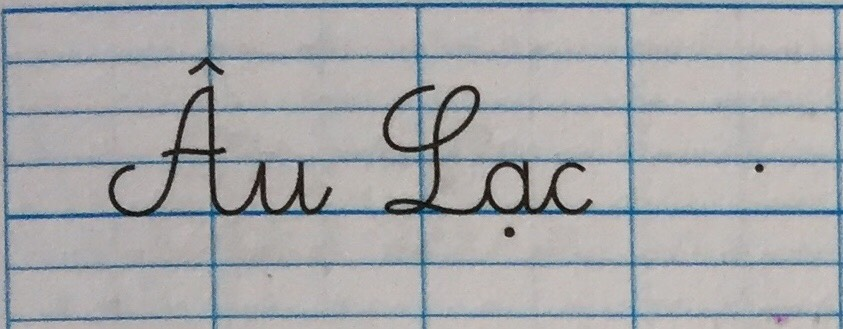 Âu Lạc